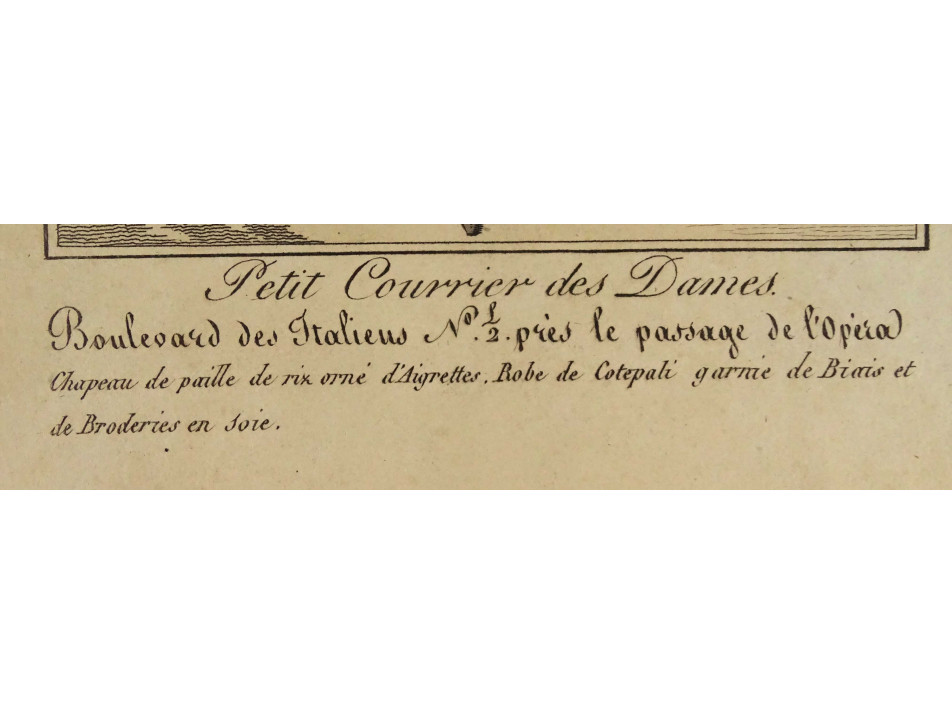 Petit Courrier des Dames.
Boulevard des Italiens N.º ½. près le passage de l'Opèra
Chapeau de paille de riz orné d'Aigrettes. Robe de Cotepali garnie de Biais et
de Broderies en soie.